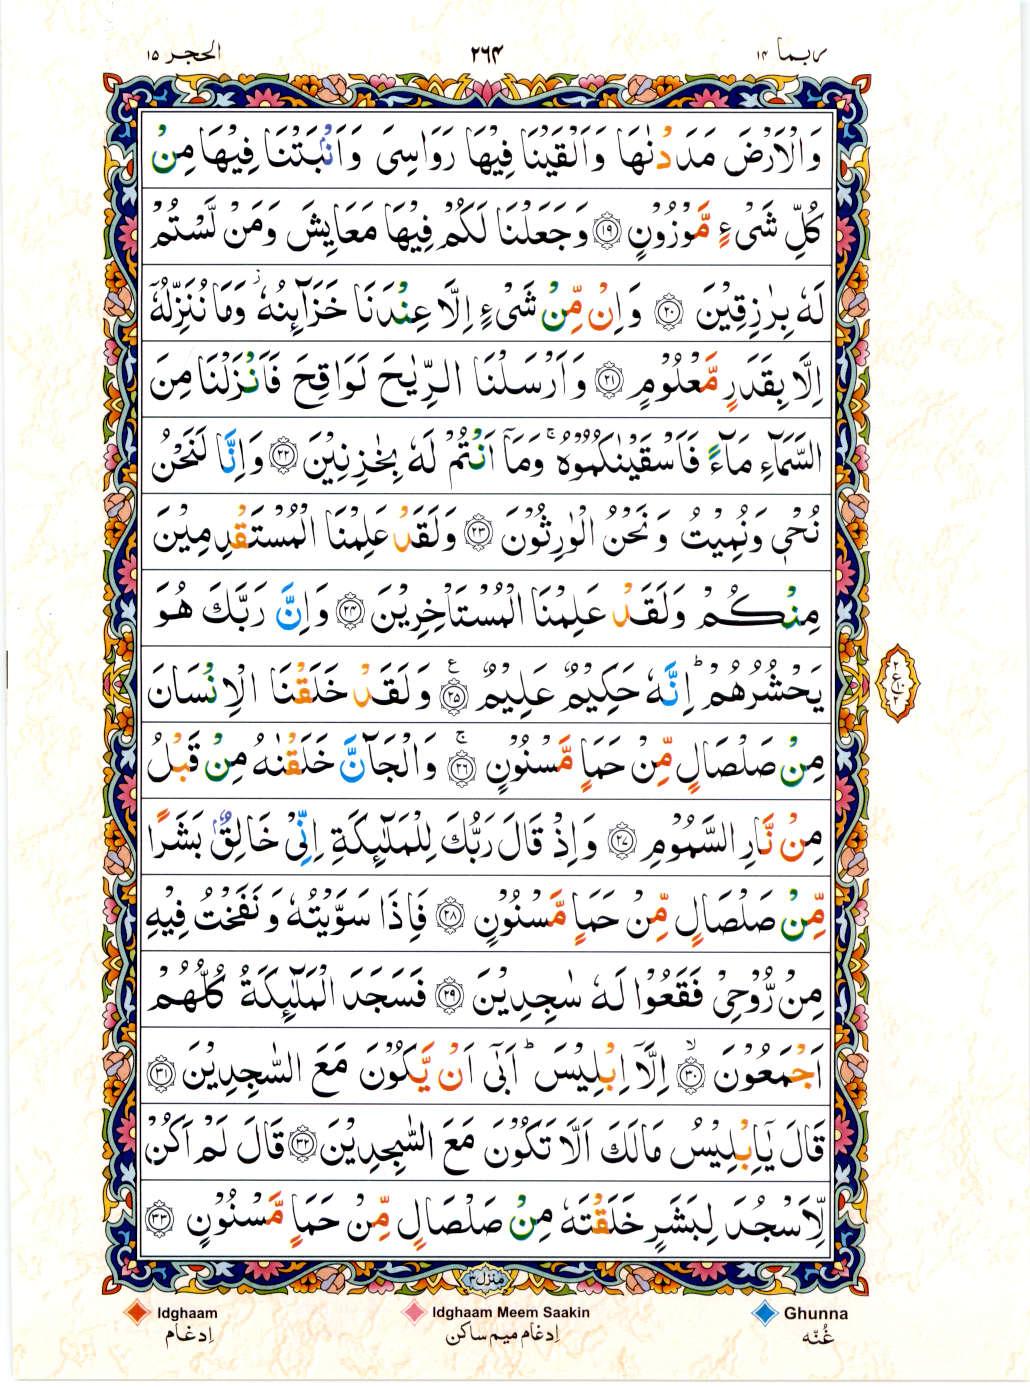 ربما ۱۴
۲۶۴
الحجر ۱۵
وَالْاَرْضَ مَدَدْنٰهَا وَاَلْقَيْنَا فِيْهَا رَوَاسِىَ وَاَنْۢبَتْنَا فِيْهَا مِنْ
كُلِّ شَىْءٍ مَّوْزُوْنٍ ﴿۱۹﴾ وَجَعَلْنَا لَكُمْ فِيْهَا مَعَايِشَ وَمَنْ لَّسْتُمْ
لَهٗ بِرٰزِقِيْنَ ﴿۲۰﴾ وَاِنْ مِّنْ شَىْءٍ اِلَّا عِنْدَنَا خَزَآئِنُهٗ ز وَمَا نُنَزِّلُهٗٓ
اِلَّا بِقَدَرٍ مَّعْلُوْمٍ ﴿۲۱﴾ وَاَرْسَلْنَا الرِّيٰحَ لَوَاقِحَ فَاَنْزَلْنَا مِنَ
السَّمَآءِ مَآءً فَاَسْقَيْنٰكُمُوْهُ ۚ وَمَآ اَنْتُمْ لَهٗ بِخٰزِنِيْنَ ﴿۲۲﴾ وَاِنَّا لَنَحْنُ
نُحْىٖ وَنُمِيْتُ وَنَحْنُ الْوٰرِثُوْنَ ﴿۲۳﴾ وَلَقَدْ عَلِمْنَا الْمُسْتَقْدِمِيْنَ
مِنْكُمْ وَلَقَدْ عَلِمْنَا الْمُسْتَاْخِرِيْنَ ﴿۲۴﴾ وَاِنَّ رَبَّكَ هُوَ
يَحْشُرُهُمْ ؕ اِنَّهٗ حَكِيْمٌ عَلِيْمٌ ﴿۲۵﴾ ع وَلَقَدْ خَلَقْنَا الْاِنْسَانَ
مِنْ صَلْصَالٍ مِّنْ حَمَاٍ مَّسْنُوْنٍ ﴿۲۶﴾ ۚ وَالْجَآنَّ خَلَقْنٰهُ مِنْ قَبْلُ
مِنْ نَّارِ السَّمُوْمِ ﴿۲۷﴾ وَاِذْ قَالَ رَبُّكَ لِلْمَلٰٓئِكَةِ اِنِّىْ خَالِقٌۢ بَشَرًا
مِّنْ صَلْصَالٍ مِّنْ حَمَاٍ مَّسْنُوْنٍ ﴿۲۸﴾ فَاِذَا سَوَّيْتُهٗ وَنَفَخْتُ فِيْهِ
مِنْ رُّوْحِىْ فَقَعُوْا لَهٗ سٰجِدِيْنَ ﴿۲۹﴾ فَسَجَدَ الْمَلٰٓئِكَةُ كُلُّهُمْ
اَجْمَعُوْنَ ﴿۳۰﴾ ۙ اِلَّآ اِبْلِيْسَ ؕ اَبٰٓى اَنْ يَّكُوْنَ مَعَ السّٰجِدِيْنَ ﴿۳۱﴾
قَالَ يٰٓاِبْلِيْسُ مَا لَكَ اَلَّا تَكُوْنَ مَعَ السّٰجِدِيْنَ ﴿۳۲﴾ قَالَ لَمْ اَكُنْ
لِّاَسْجُدَ لِبَشَرٍ خَلَقْتَهٗ مِنْ صَلْصَالٍ مِّنْ حَمَاٍ مَّسْنُوْنٍ ﴿۳۳﴾
منزل ۳
Idghaam Idghaam Meem Saakin Ghunna
اِدغام اِدغام میم ساکن غُنّه